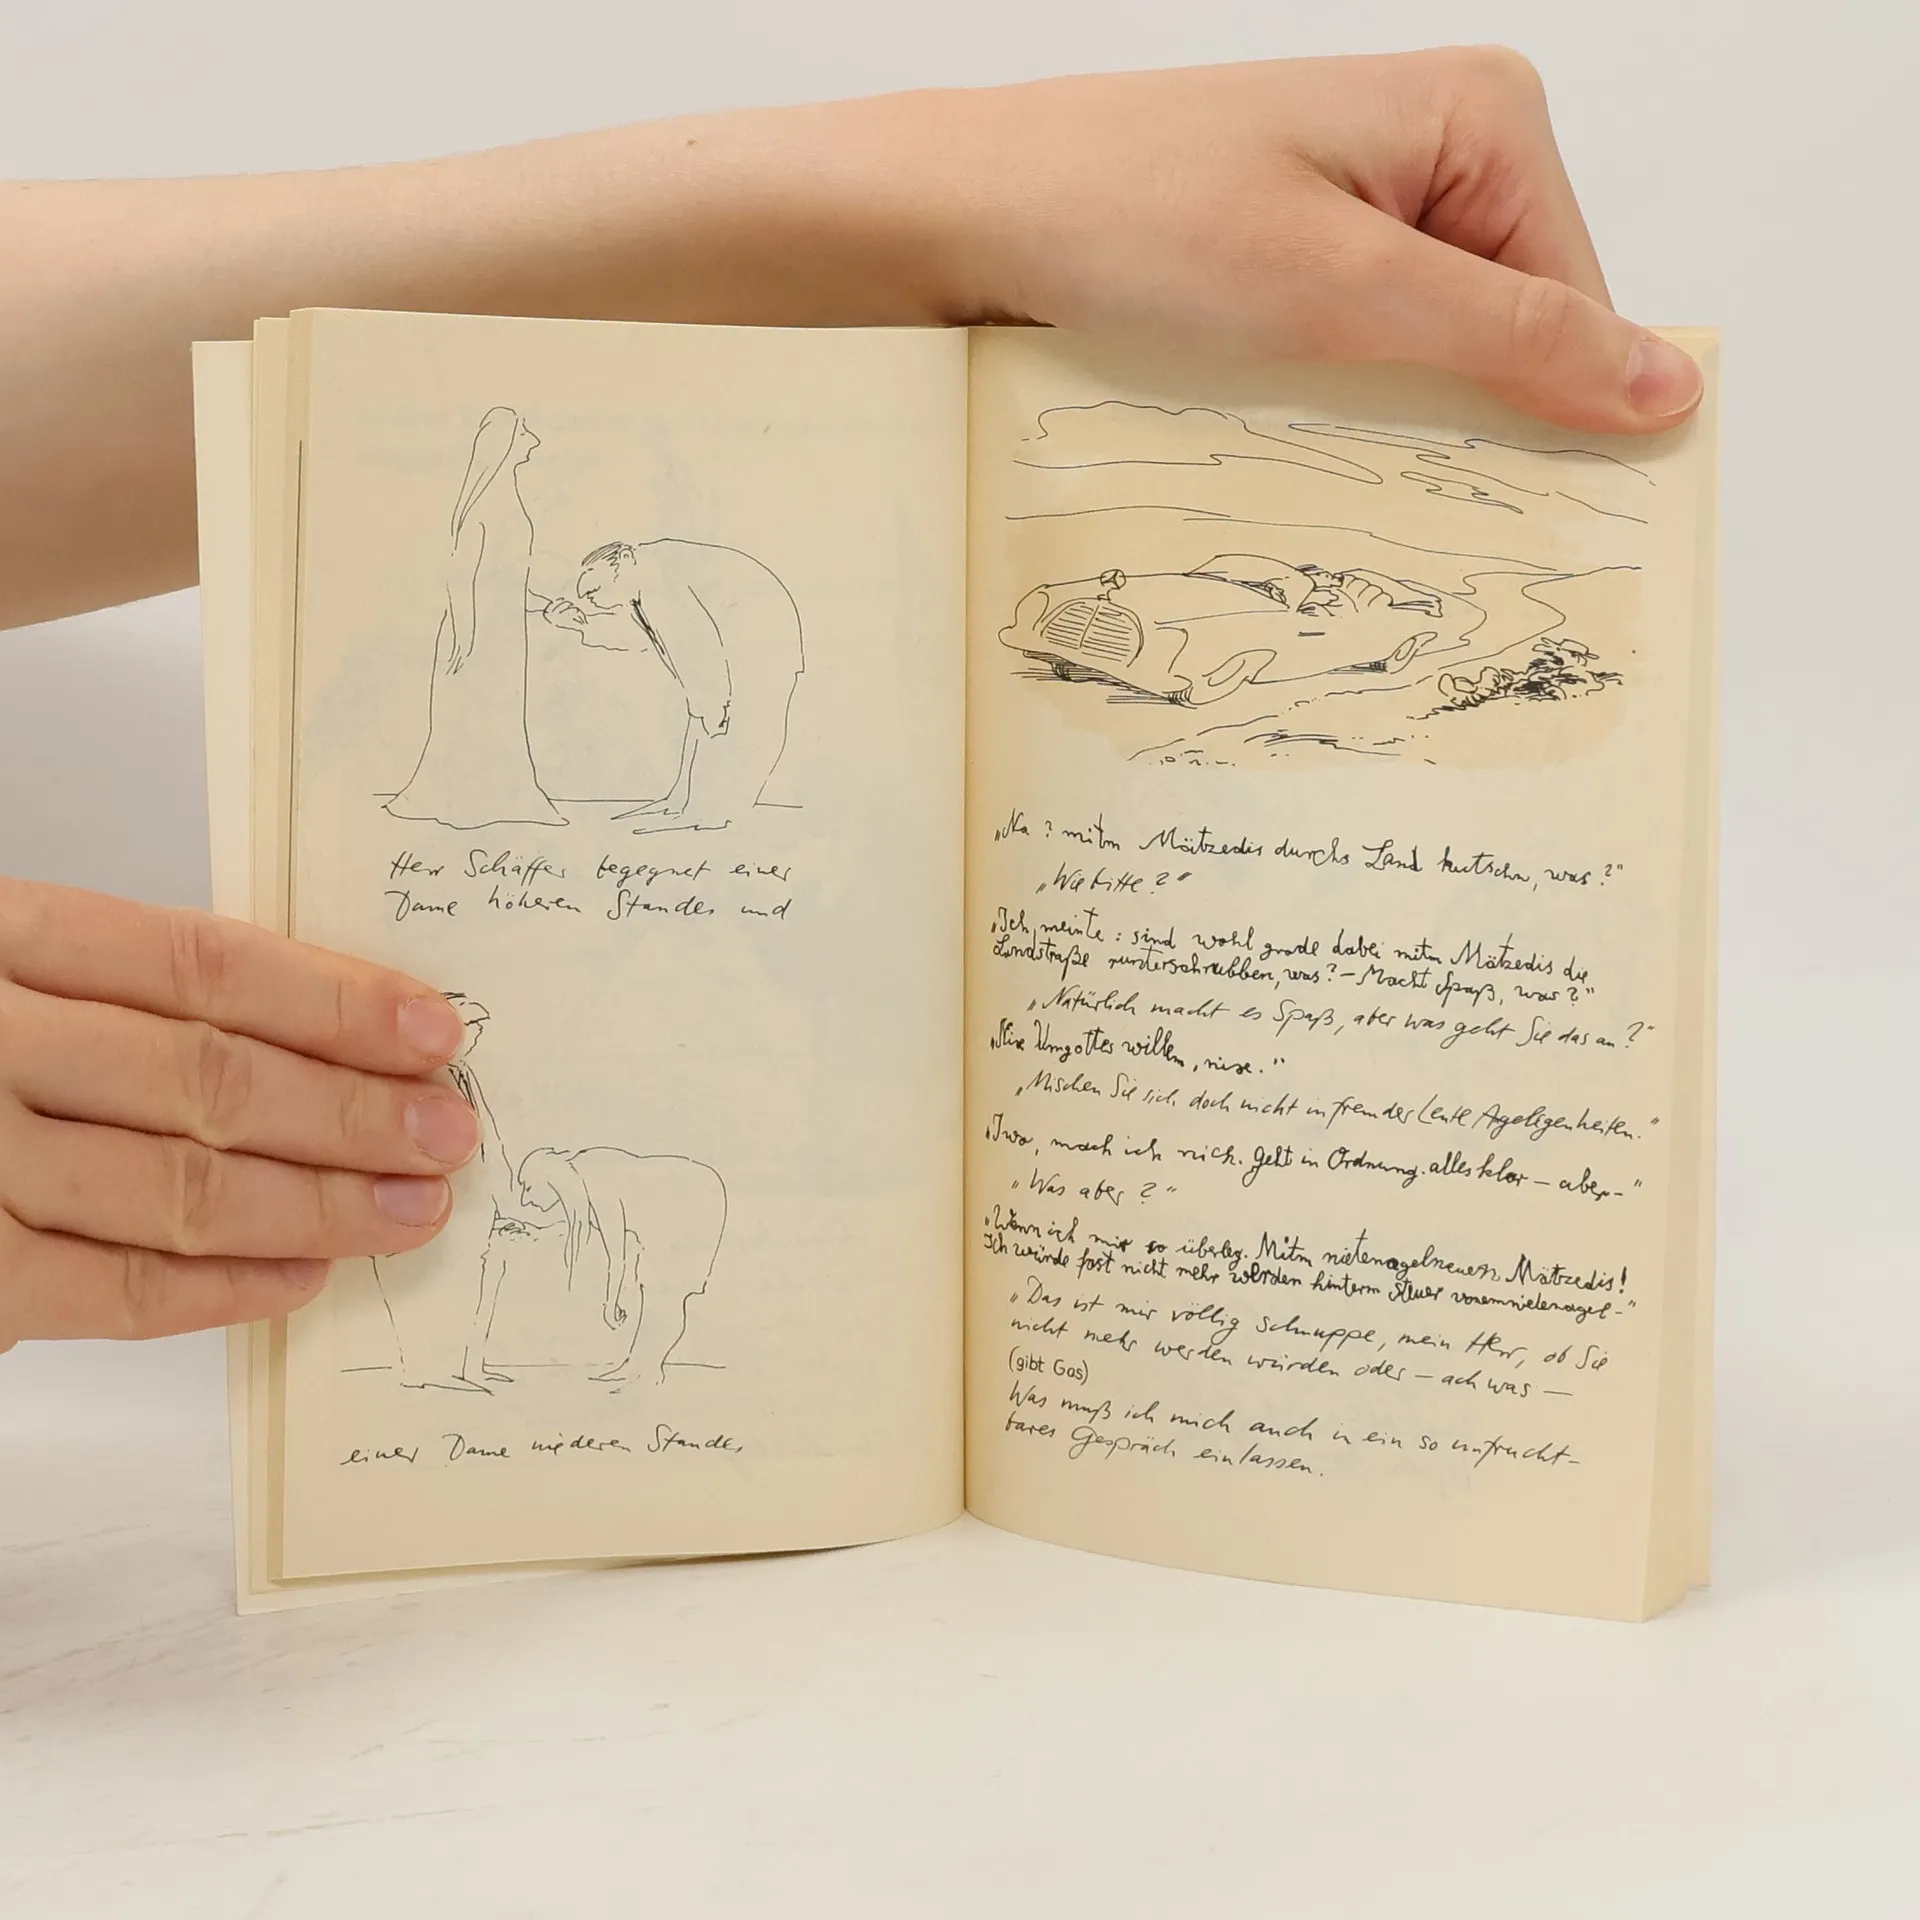 Herr Schäffer begegnet einer
Dame höheren Standes und
einer Dame niederen Standes
„Na? mitm Mätzedis durchs Land kutschn, was?“
„Wie bitte?“
„Ich meinte: sind wohl grade dabei mitm Mätzedis die
Landstraße runterschrubben, was? – Macht Spaß, was?“
„Natürlich macht es Spaß, aber was geht Sie das an?“
„Nix Umgottes willen, nixe.“
„Mischen Sie sich doch nicht in fremder Leute Agelegenheiten.“
„Iwo, mach ich nich. Geht in Ordnung. alles klar – aber –“
„Was aber?“
„Wenn ich mir so überleg. Mitm nietenagelneuen Mätzedis!
Ich würde fast nicht mehr werden hinterm Steuer vonemnietenagel-“
„Das ist mir völlig schnuppe, mein Herr, ob Sie
nicht mehr werden würden oder – ach was –
(gibt Gas)
Was muß ich mich auch in ein so unfrucht-
bares Gespräch einlassen.